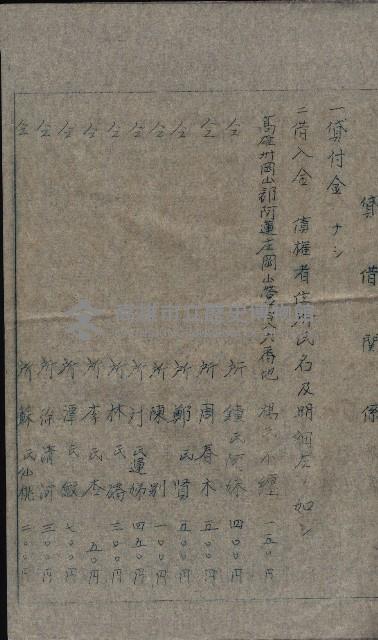 貸借関係
一貸付金 ナシ
二借入金 債權者住所氏名及明細左ノ如シ
高雄州岡山郡阿蓮庄岡山營 六番地 楊 小纏 一五〇円
仝 所 鐘氏阿 四〇〇円
仝 所 周春木 五〇〇円
仝 所 鄭氏賢 五〇〇円
仝 所 陳別 一〇〇円
仝 所 氏蓮 四五〇円
仝 所 林氏 三〇〇円
仝 所 李氏杏 五〇円
仝 所 潭氏 七〇〇円
仝 所 徐清河 三〇〇円
仝 所 蘇氏仙桃 二〇〇円